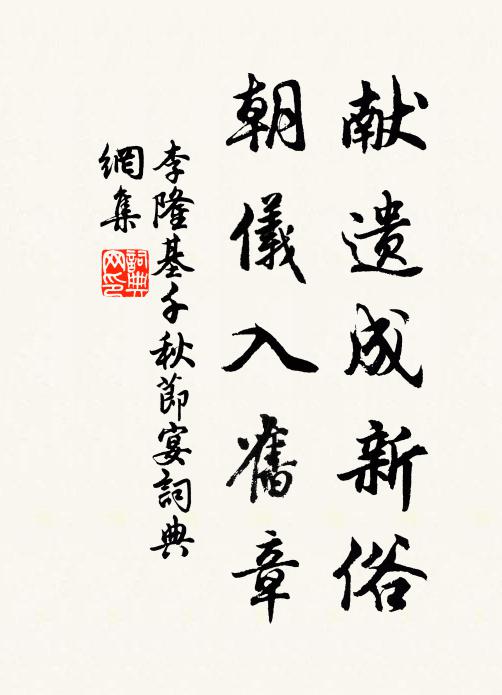 献遗成新俗
朝儀入舊章
李隆基千秋節宴詞典
網集
詞典
网印